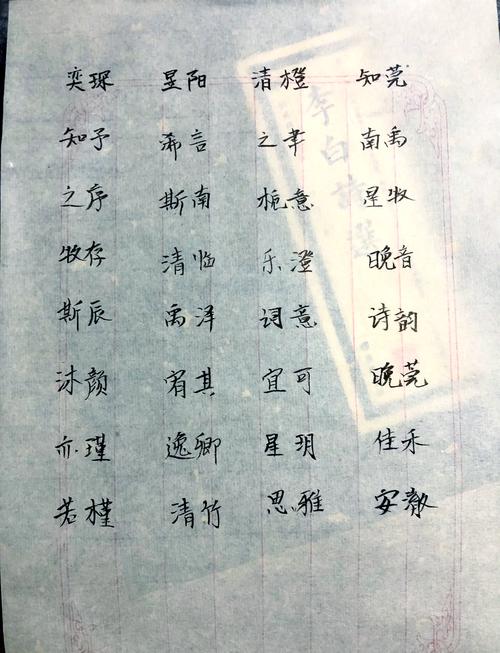 奕琛 昱阳 清橙 知莞
知予 希言 之聿 南禹
之序 斯南 栀意 星牧
牧存 清临 乐澄 晚音
斯辰 禹泽 词意 诗韵
沐颜 宥其 宜可 晚莞
亦瑾 逸卿 星玥 佳禾
若槿 清竹 思雅 安澈
李白詩選